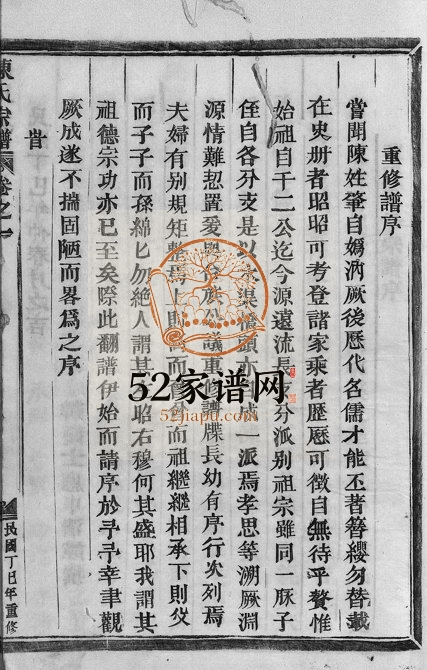 重修譜序
嘗聞陳姓肇自媯汭厥後歷代名儒才能丕著簪纓勿替載
在史册者昭昭可考登諸家乘者歷歷可徵自無待乎贅惟
始祖自千二公迄今源遠流長支分派别祖宗雖同一脉子
侄自各分支是以 渠 頭亦 成一派焉孝思等溯厥淵
源情難恝置爰 族公議重修譜牒長幼有序行次列焉
夫婦有别規矩整焉上則 而 而祖繼繼相承下則父
而子子而孫綿匕勿絶人謂其 昭右穆何其盛耶我謂其
祖德宗功亦已至矣際此翻譜伊始而請序於予予幸聿觀
厥成遂不揣固陋而畧為之序
旹
陳氏宗譜
卷之一
民國丁巳年重修
52家谱网
52jiapu.com